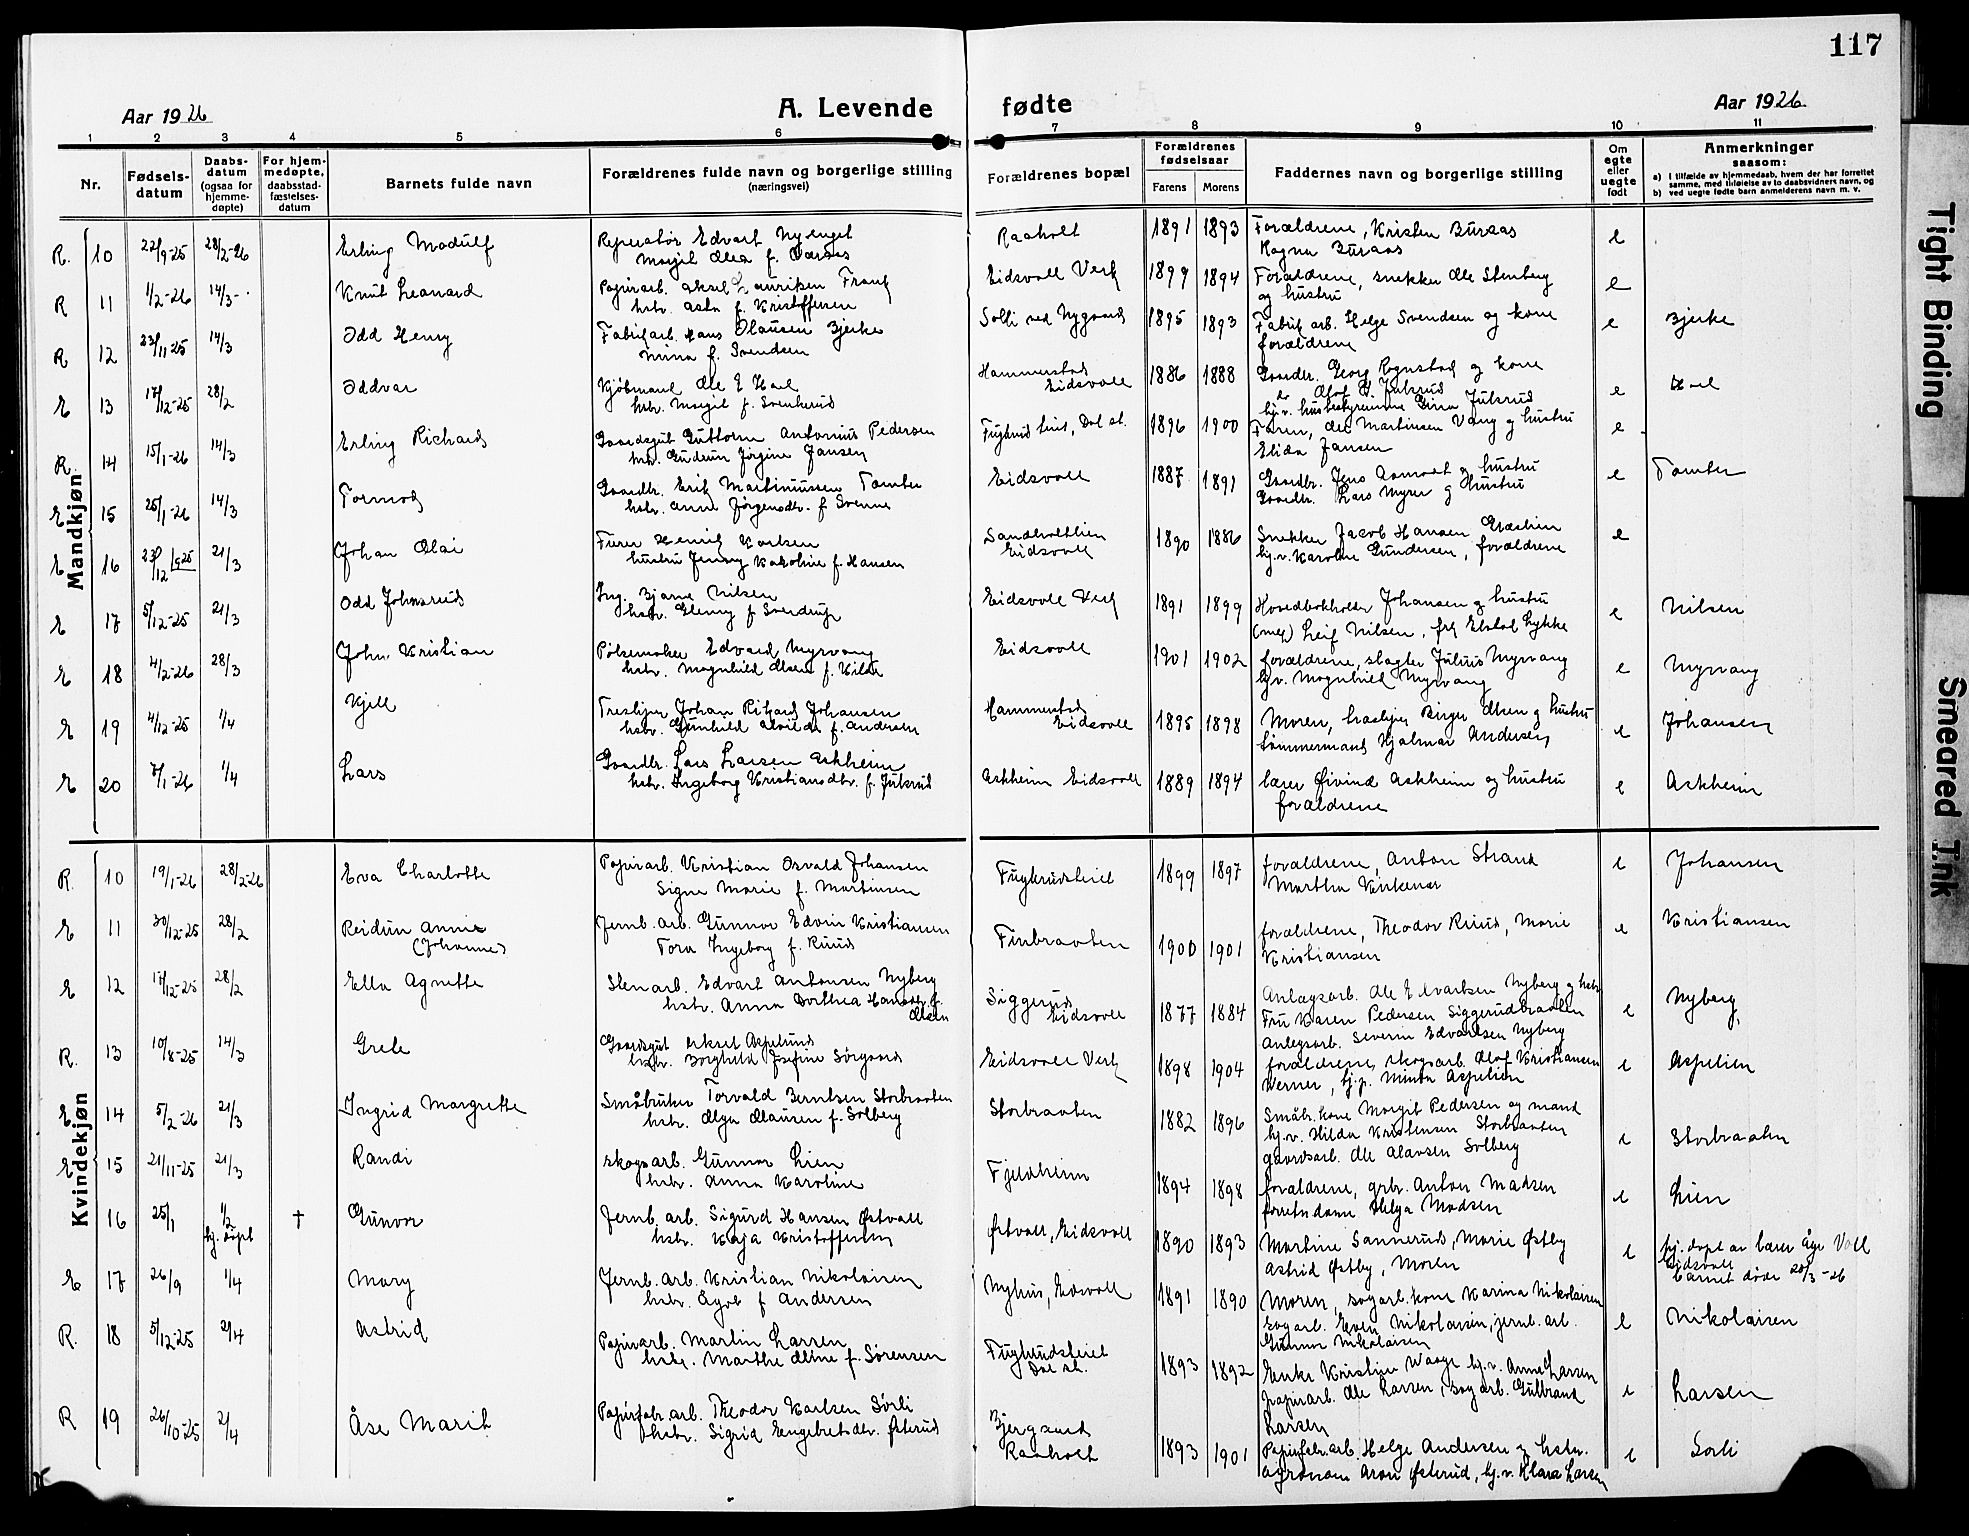 117
Aar 1926
A. Levende
fødte
Aar 1926
1 2 3 4 5 6 7 8 9 10 11
Nr.
Fødsels-
datum
Daabs-
datum
(ogsaa for
hjemme-
døpte)
For hjem-
medøpte,
daabsstad-
fæstelses-
datum
Barnets fulde navn
Forældrenes fulde navn og borgerlige stilling
(næringsvei)
Forældrenes bopæl
Forældrenes
fødselsaar
Farens Morens
Faddernes navn og borgerlige stilling
Om
egte
eller
uegte
født
Anmerkninger
saasom:
a) I tilfælde av hjemmedaab, hvem der har forrettet
samme, med tilføielse av to daabsvidners navn, og
b) ved uegte fødte barn anmelderens navn m. v.
Mandkjøn
R. 10 22/9-25 28/2-26 Erling Modulf
Edvart Nyenget
Raaholt 1891 1893 Forældrene, Kristen Buraas e
Magna Buraas
R 11 1/2-26 14/3- Knut Leonard
Papirarb. Aksel Lauritsen Frank
hstr. Asta f. Kristoffersen
Eidsvoll Verk 1899 1894 Forældrene, snekker Ole Stenberg e
og hustru
R 12 23/11 25 14/3 Odd Henry
Fabrikarb. Hans Olausen Bjerke
Mina f. Svendsen
Solli ved Nygaard 1895 1893 Fabrik arb. Helge Svendsen og kone e Bjerke
forældrene
E 13 17/12-25 28/2 Oddvar
Kjøbmand Ole E Hoel
hstr. Margit f. Svenkerud
Hammerstad
Eidsvoll 1886 1888 Gaardbr. Georg Rognstad og kone e Hoel
hj.v. husbestyrerinne Gina Julsrud
R. 14 15/1-26 14/3 Erling Richard
Gaardsgut Guttorm Antonius Pedersen
hstr. Gudrun Jørgine Jansen
Fuglerud teiet, Dal st. 1896 1900 Faren, Ole Martinsen Vang og hustru e
Elida Jansen
E 15 25/1-26 14/3 Tormod
Gaardbr. Erik Martinussen Tomter
hstr. Anne Jørgensdtr. f Svenne
Eidsvoll 1887 1891 Gaardbr. Jens Aamodt og hustru e Tomter
Gaardbr. Lars Myrer og Hustru
E 16 23/12 1925 21/3 Johan Olai
Furer Henrik Karlsen
hustru Jenny Karoline f. Hansen
Sandholtlien
Eidsvoll 1890 1886 Snekker Jacob Hansen e
hj.v. Karoline Gundersen, forældrene
E 17 5/12-25 21/3 Odd Johnsrud
Ing. Bjarne Nilsen
hstr. Glenny f Svendrup
Eidsvoll Verk 1891 1899 Hovedbokholder Johansen og hustru e Nilsen
Leif Nilsen, frk Lykke
E 18 4/2-26 28/3 John Kristian
Pølsemaker Edvard Myrvang
hstr. Magnhild Olsen f. Kilde
Eidsvoll 1901 1902 forældrene, slagter Julius Myrvang e Myrvang
hj.v. Magnhild Myrvang
E 19 4/12-25 1/4 Kjell
Treskjer Johan Rikard Johansen
hstr. Gunhild Alvilde f. Andersen
Hammerstad
Eidsvoll 1895 1898 Moren, Birger Olsen og hustru e Johansen
tømmermand Hjalmar Andersen
E 20 7/1-26 1/4 Lars
Gaardbr. Lars Larsen Askheim
hstr. Ingeborg Kristiansdtr. f. Julsrud
Askheim Eidsvoll 1889 1894 lærer Øivind Askheim og hustru e Askheim
forældrene
Kvindekjøn
R. 10 19/1-26 28/2-26 Eva Charlotte
Papirarb. Kristian Osvald Johansen
Signe Marie f. Martinsen
Fuglerudteiet 1899 1897 forældrene, Anton Strand e Johansen
Martha Kirkenær
E 11 30/12-25 28/2 Reidun Annie
(Johanne)
Jernb. arb. Gunnar Edvin Kristiansen
Tora Ingeborg f. Ruud
Finbraaten 1900 1901 forældrene, Theodor Ruud, Marie e Kristiansen
Kristiansen
E 12 17/12-25 28/2 Ella Agnette
Stenarb. Edvart Antonsen Nyberg
hstr. Anna Dorthea Hansdtr. f.
Olsen
Siggerud
Eidsvoll 1877 1884 Anlægsarb. Ole Edvartsen Nyberg og hstr. e Nyberg
Fru Karen Pedersen Siggerudbraaten
Anlegsarb. Severin Edvartsen Nyberg
R. 13 10/8-25 14/3 Grete
Gaardsgut Aksel Aspelund
hstr. Borghild Josefine Sørgaard
Eidsvoll Verk 1898 1904 forældrene, skogsarb. Olaf Kristiansen e Aspelien
Werner, hj.p. Minda Aspelien
E 14 5/2-26 21/3 Ingrid Margrette
Småbruker Torvald Berntsen Storbraaten
hstr. Olga Olausen f. Solberg
Storbraaten 1882 1896 Småbr. kone Margit Pedersen og mand e Storbraaten
hj.v. Hilda Kristensen Storbraaten
gaardsarb. Ole Olausen Solberg
E 15 21/11-25 21/3 Randi
skogsarb. Gunnar Lien
hstr. Anna Karoline
Fjeldheim 1894 1898 forældrene, grbr. Anton Madsen e Lien
forretn dame Helga Madsen
16 25/1 1/2
hj. døpt † Gunvor
Jernb. arb. Sigurd Hansen Østvoll
hstr. Kaja Kristoffersen
Østvoll, Eidsvoll 1890 1893 Martine Sannerud, Marie Østby e hj. døpt av lærer Åge Voll
Astrid Østby, Moren Eidsvoll
barnet døde 20/3-26
E 17 26/9 1/4 Mary
Jernb. arb. Kristian Nikolaisen
hstr. Ågot f Andersen
Nyhus, Eidsvoll 1891 1890 Moren, sagarb. kone Karina Nikolaisen e Nikolaisen
sagarb. Even Nikolaisen, jernb. arb.
Gunnar Nikolaisen
R. 18 5/12-25 2/4 Astrid
Papirarb. Martin Larsen
hstr. Marthe Oline f. Sørensen
Fuglerudsteiet
Dal st. 1893 1892 Enke Kristine Waage hj.v. Anne Larsen e Larsen
papirarb. Ole Larsen, sagarb. Gulbrand
Larsen
R 19 26/10-25 2/4 Åse Marit
Papirfabr. arb. Theodor Karlsen Sørli
hstr. Sigrid Engebretsdtr. Østerud
Bjergsund
Raaholt 1893 1901 Papirfabr. arb. Helge Andersen og hstr. e Sorli
agronom Aron Østerud, hj.v. Klara Larsen
Tight Binding
Smeared Ink